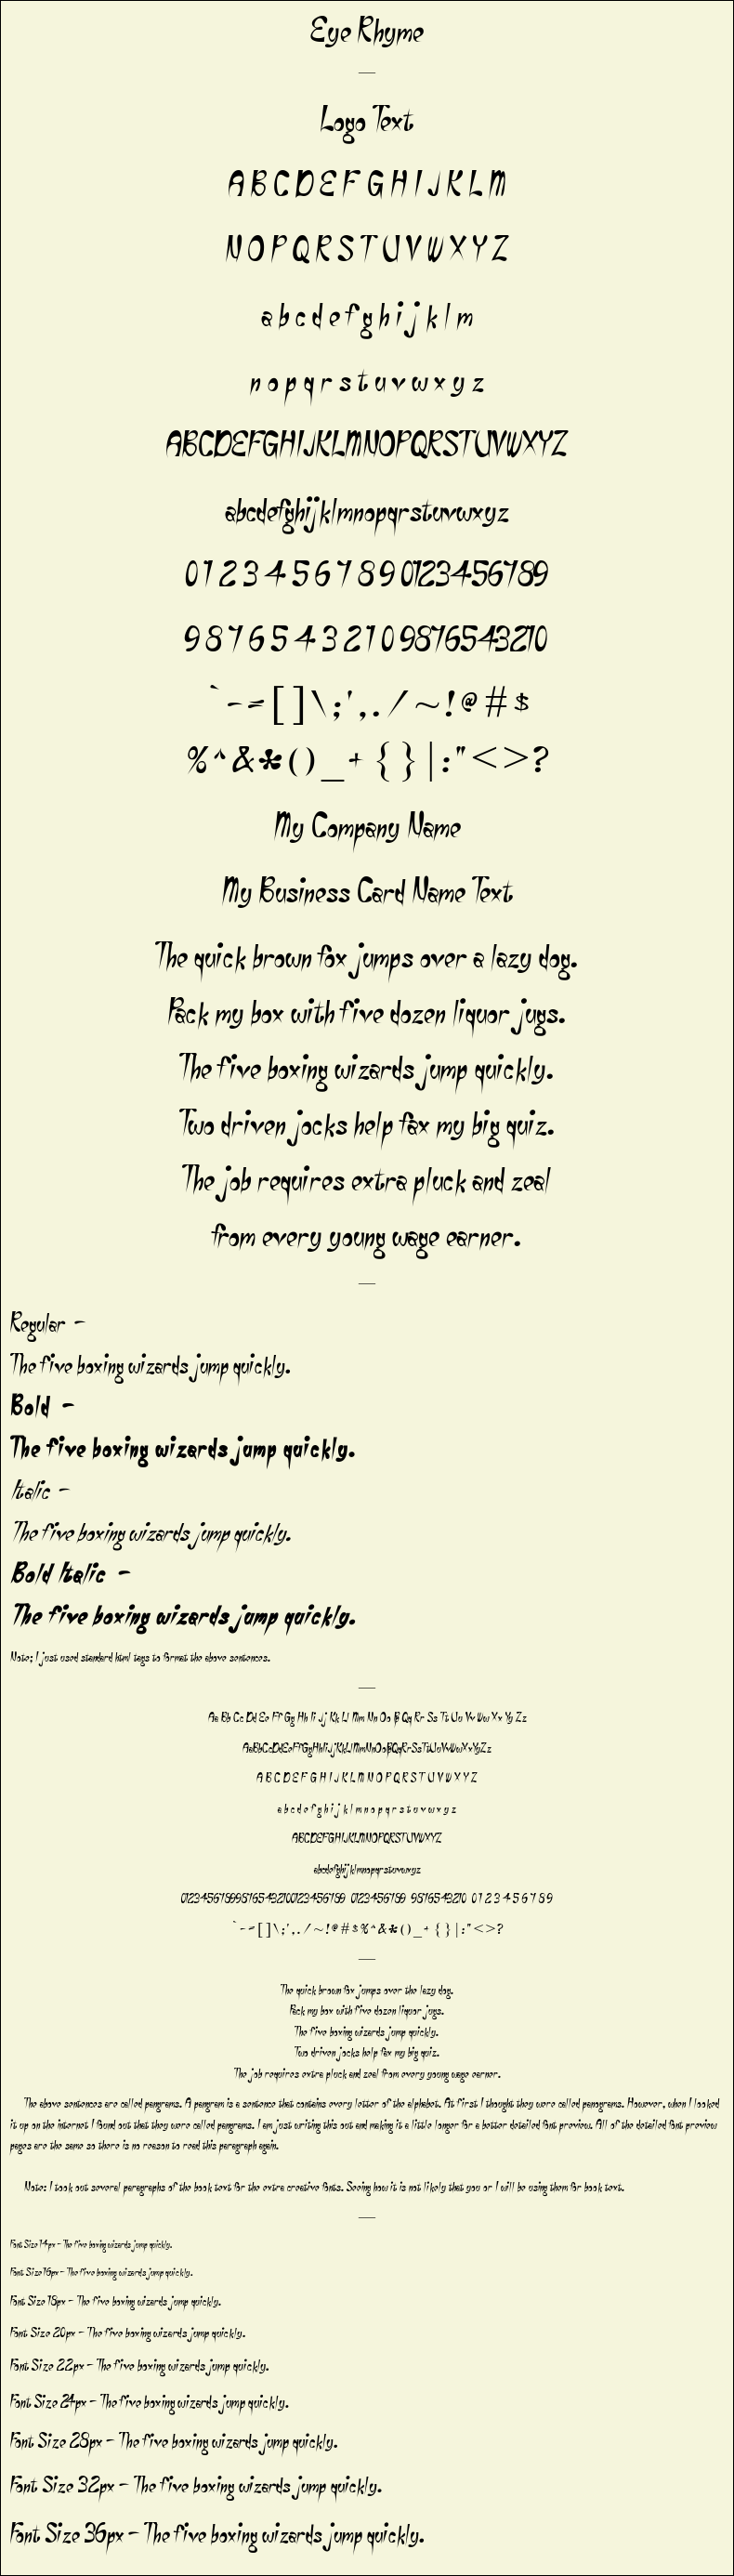 Eye Rhyme
—
Logo Text
A B C D E F G H I J K L M
N O P Q R S T U V W X Y Z
a b c d e f g h i j k l m
n o p q r s t u v w x y z
ABCDEFGHIJKLMNOPQRSTUVWXYZ
abcdefghijklmnopqrstuvwxyz
0 1 2 3 4 5 6 7 8 9 0123456789
9 8 7 6 5 4 3 2 1 0 9876543210
` - = [ ] \ ; ' , . / ~ ! @ # $
% ^ & * ( ) _ + { } | : " < > ?
My Company Name
My Business Card Name Text
The quick brown fox jumps over a lazy dog.
Pack my box with five dozen liquor jugs.
The five boxing wizards jump quickly.
Two driven jocks help fax my big quiz.
The job requires extra pluck and zeal
from every young wage earner.
—
Regular -
The five boxing wizards jump quickly.
Bold -
The five boxing wizards jump quickly.
Italic -
The five boxing wizards jump quickly.
Bold Italic -
The five boxing wizards jump quickly.
Note: I just used standard html tags to format the above sentences.
—
Aa Bb Cc Dd Ee Ff Gg Hh Ii Jj Kk Ll Mm Nn Oo Pp Qq Rr Ss Tt Uu Vv Ww Xx Yy Zz
AaBbCcDdEeFfGgHhIiJjKkLlMmNnOoPpQqRrSsTtUuVvWwXxYyZz
A B C D E F G H I J K L M N O P Q R S T U V W X Y Z
a b c d e f g h i j k l m n o p q r s t u v w x y z
ABCDEFGHIJKLMNOPQRSTUVWXYZ
abcdefghijklmnopqrstuvwxyz
012345678998765432100123456789 0123456789 9876543210 0 1 2 3 4 5 6 7 8 9
` - = [ ] \ ; ' , . / ~ ! @ # $ % ^ & * ( ) _ + { } | : " < > ?
—
The quick brown fox jumps over the lazy dog.
Pack my box with five dozen liquor jugs.
The five boxing wizards jump quickly.
Two driven jocks help fax my big quiz.
The job requires extra pluck and zeal from every young wage earner.
The above sentences are called pangrams. A pangram is a sentence that contains every letter of the alphabet. At first I thought they were called panograms. However, when I looked
it up on the internet I found out that they were called pangrams. I am just writing this out and making it a little longer for a better detailed font preview. All of the detailed font preview
pages are the same so there is no reason to read this paragraph again.
Note: I took out several paragraphs of the book text for the extra creative fonts. Seeing how it is not likely that you or I will be using them for book text.
—
Font Size 14px - The five boxing wizards jump quickly.
Font Size 16px - The five boxing wizards jump quickly.
Font Size 18px - The five boxing wizards jump quickly.
Font Size 20px - The five boxing wizards jump quickly.
Font Size 22px - The five boxing wizards jump quickly.
Font Size 24px - The five boxing wizards jump quickly.
Font Size 28px - The five boxing wizards jump quickly.
Font Size 32px - The five boxing wizards jump quickly.
Font Size 36px - The five boxing wizards jump quickly.